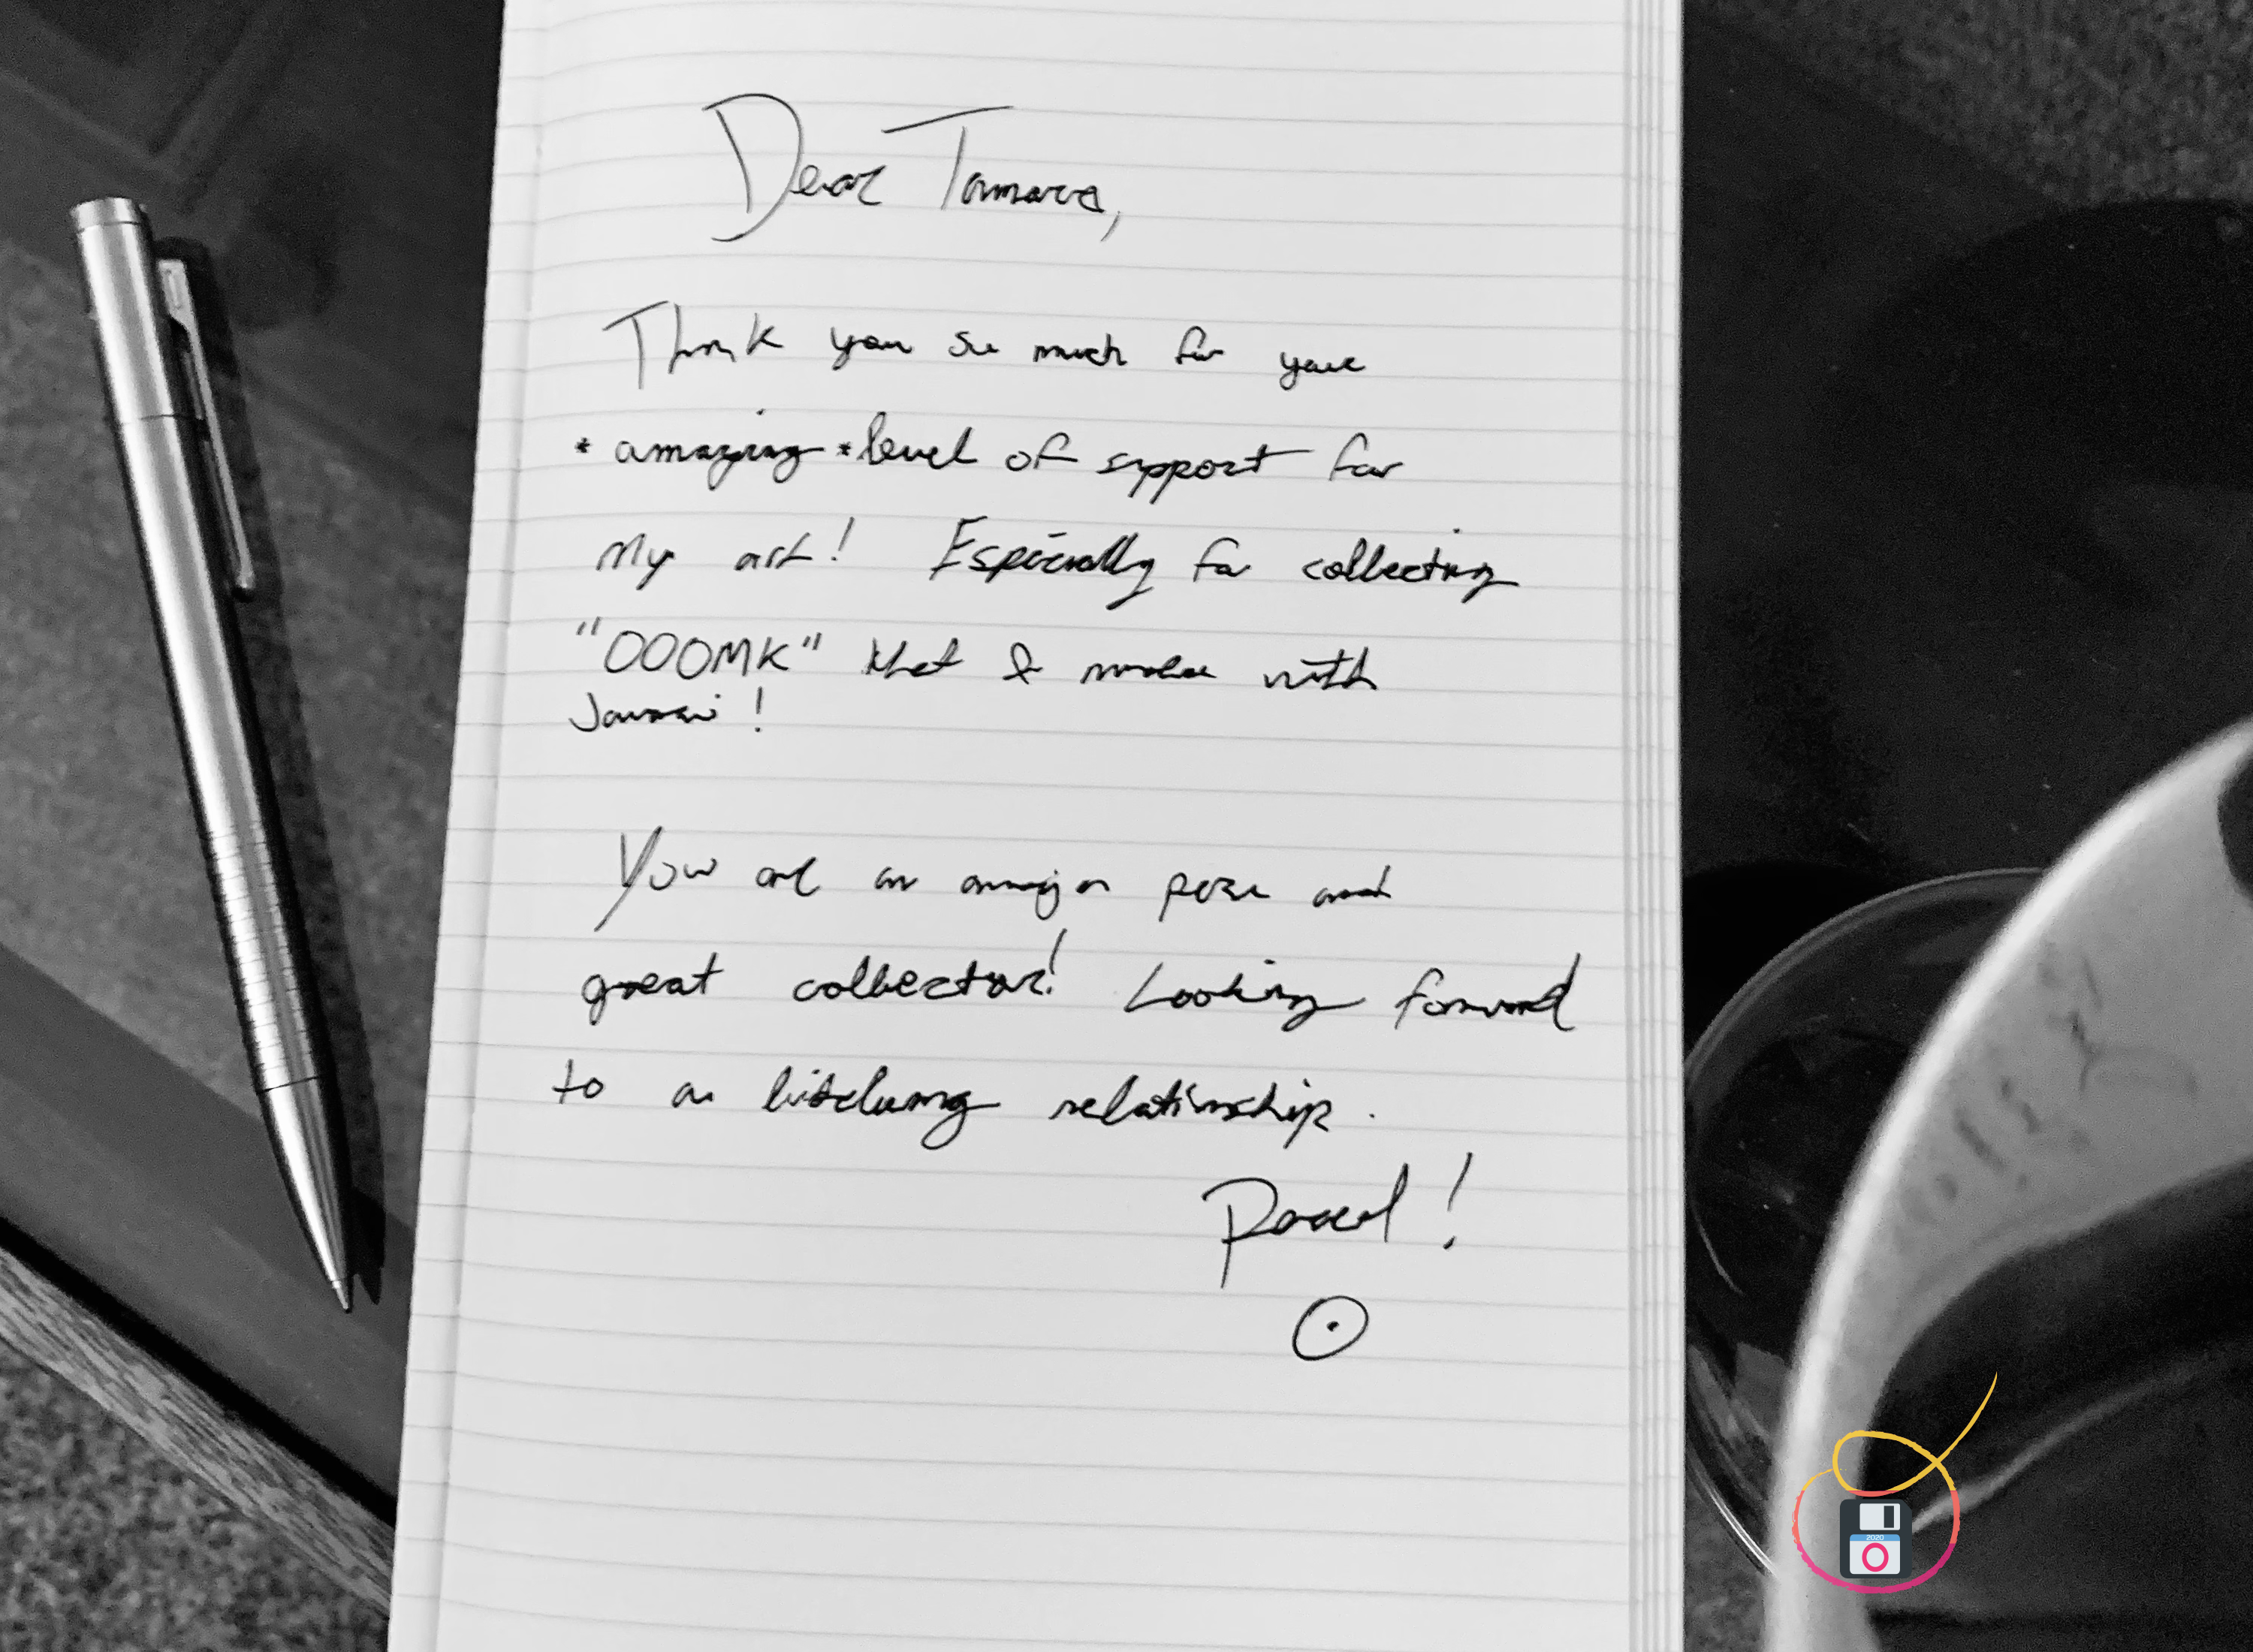 Dear Tamara,
Thank you so much for your
*amazing* level of support for
my art! Especially for collecting
"OOOMK" that I make with
You are an amazing person and
great collector! Looking forward
to a lifelong relationship.
2020